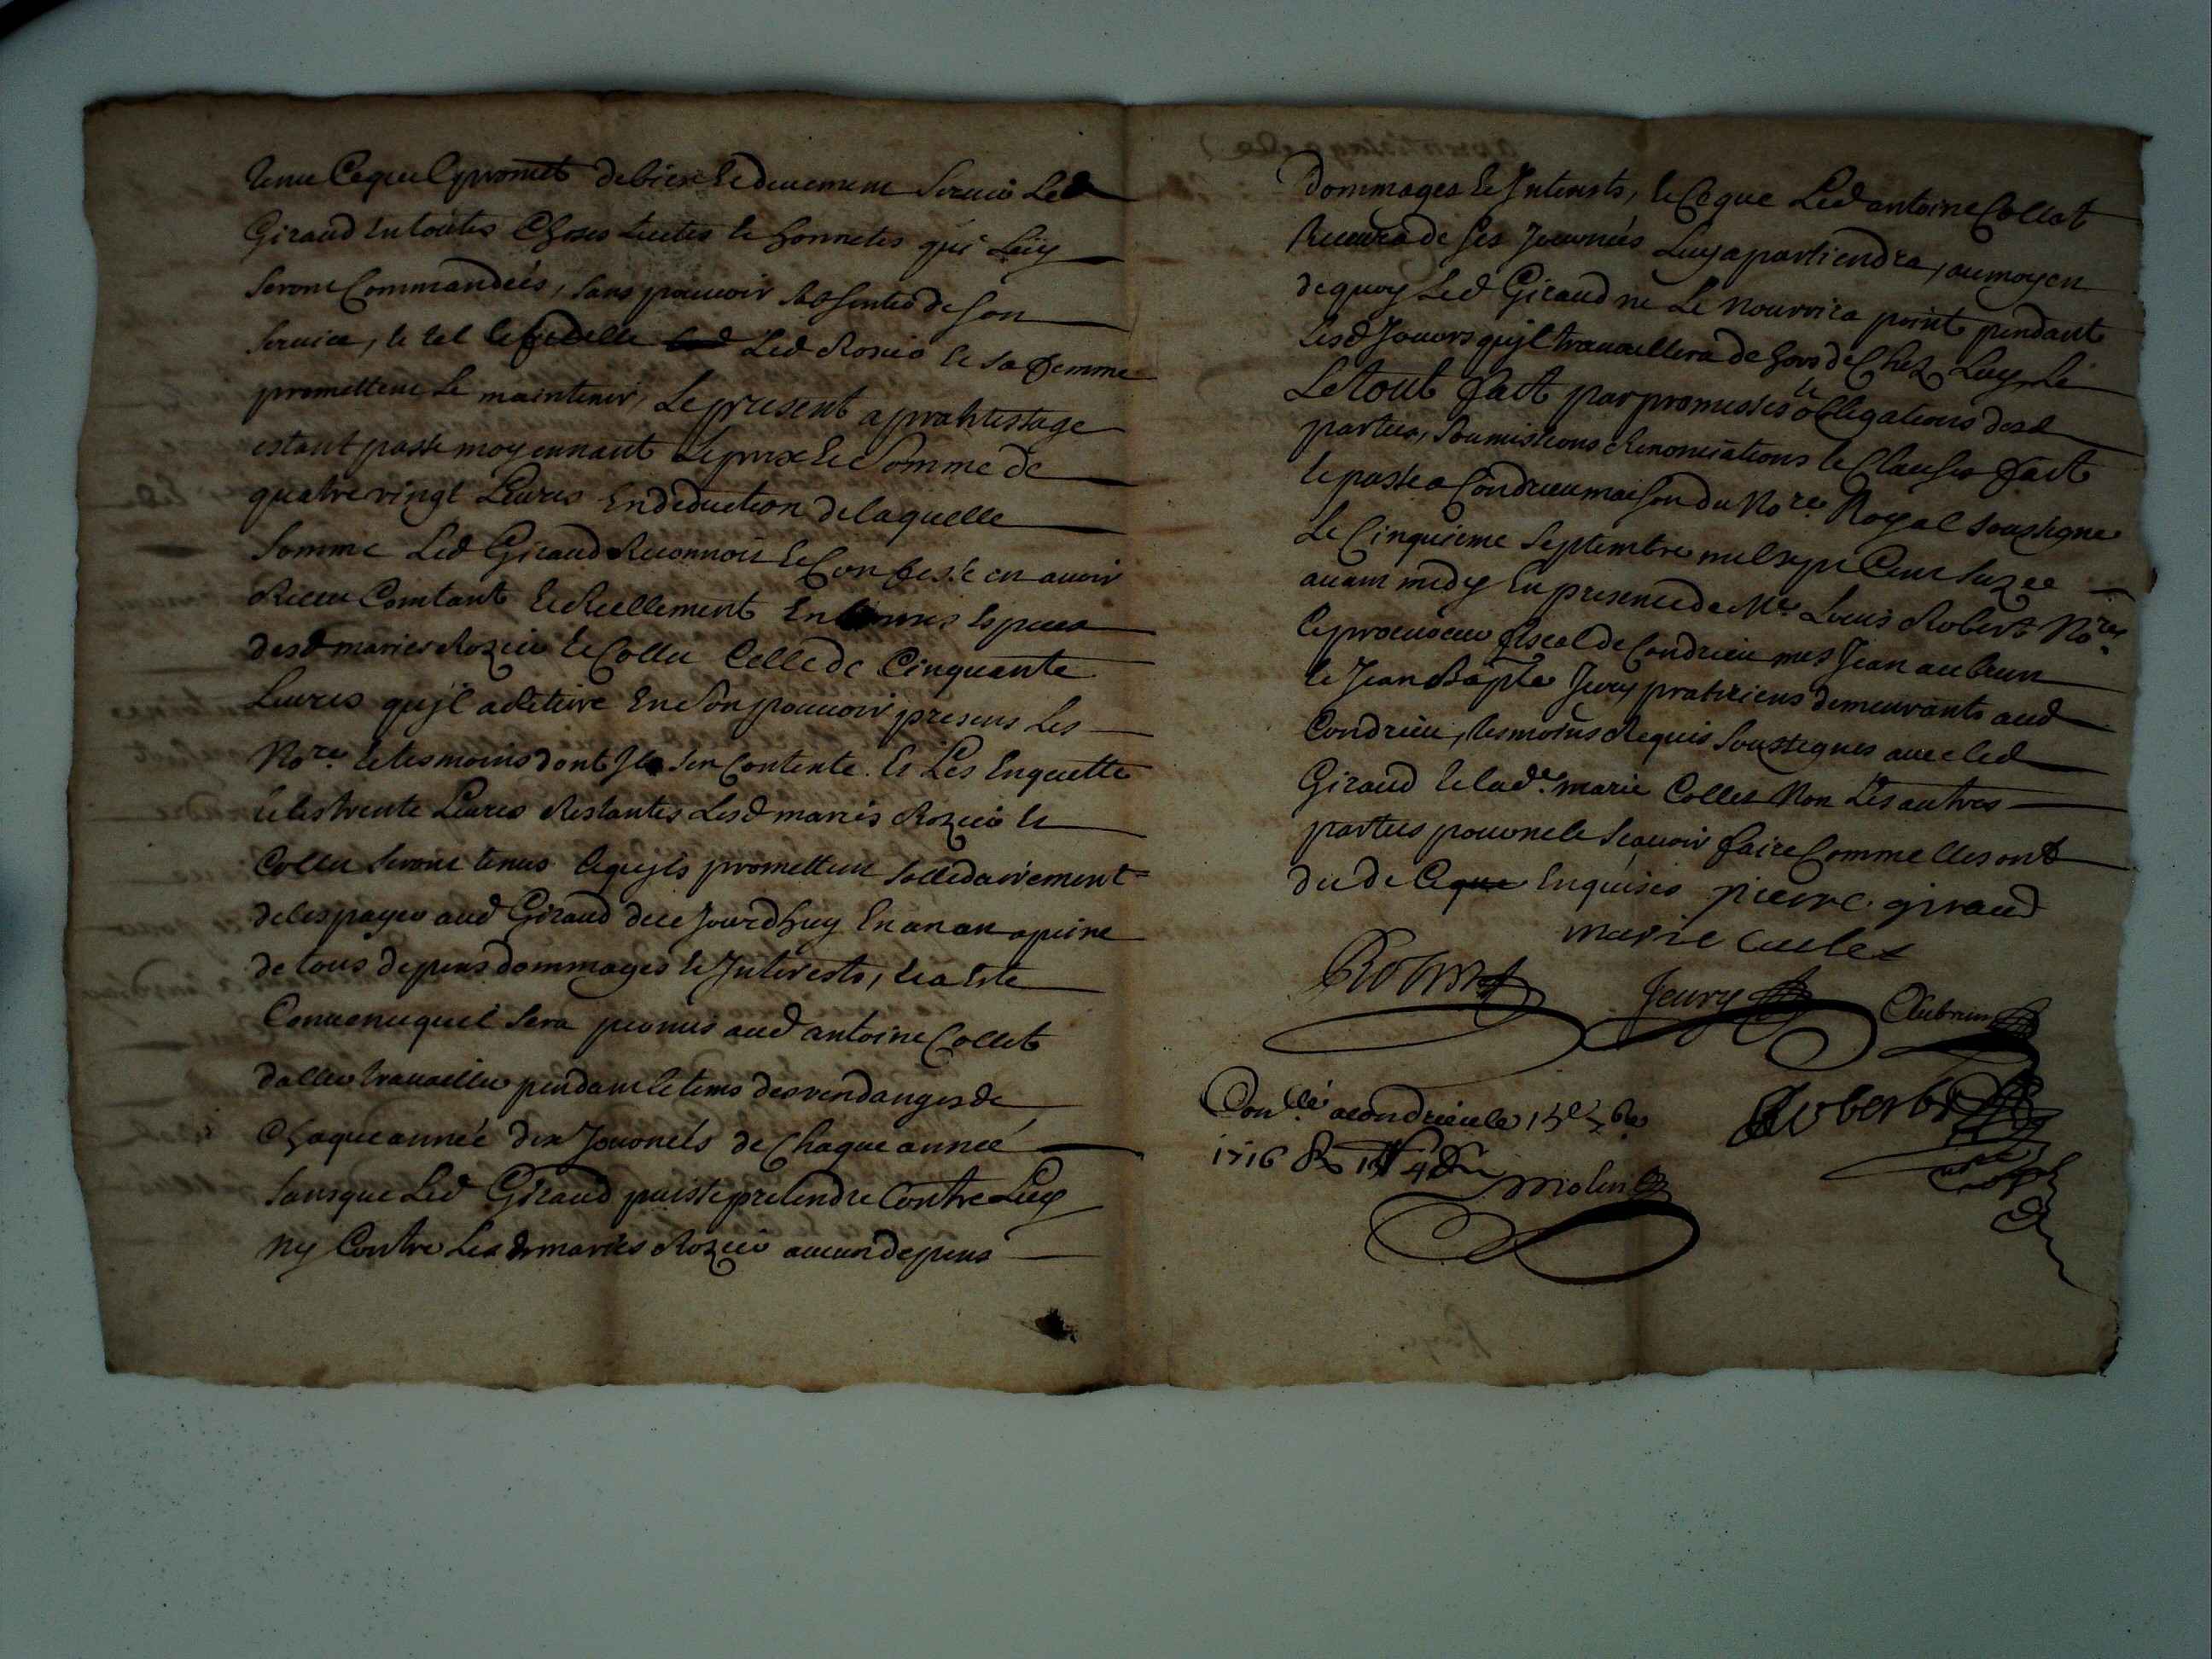 tenu Ceque Il promet debien Et deuement Seruir Led
Giraud En toutes Choses licites Et honnetes qui Luy
Seront Commandées, Sans pouuoir sabsenter de Son
Seruice, Et tel Led Rozier Et Sa femme
promettent Le maintenir, Le present aprantissage
estant passé moyennant Le prix Et Somme de
quatre vingt Liures En deduction de laquelle
Somme Led Giraud Reconnoit Et Confesse en auoir
Receu Comtant Et Reellement En bonnes Especes
desd mariés Rozier Et Collet Celle de Cinquante
Liures qujl a Retiré En Son pouuoir presens Les
No.re Et tesmoins dont Il Sen Contente Et Les En quitte
Et les trente Liures Restantes Lesd mariés Rozier Et
Collet Seront tenus Cequjls promettent Sollidairement
de les payer aud Giraud de ce Jourdhuy En un an a peine
de tous depens dommages Et Interests, Et a Esté
Conuenu quil Sera permis aud antoine Collet
daller trauailler pendant le tems des vendanges de
Chaque année dix Journeés de Chaque année
Sans que Led Giraud puisse pretendre Contre Luy
ny Contre Lesd mariés Rozier aucun depens
Dommages Et Interests, Et Ceque Led antoine Collet
Receura de Ses Journeés Luy apartiendra, au moyen
de quoy Led Giraud ne Le nourrira point pendant
Lesd Jours qujl trauaillera de hors de Chez Luy Et
Le tout fait par promesses Et obligations desd
parties, Soumissions Renonciations Et Clauses fait
Et passé a Condrieu maison du No.re Royal Soussigné
Le Cinquieme Septembre mil Sept Cent Seze
auant midy En presence de Me Louis Robert No.re
Et procureur fiscal de Condrieu mes Jean aubrun
Et Jean Bap.te Jeury pratitiens demeurants aud
Condrieu, tesmoins Requis Soussignes auec led
Giraud Et lad.e marie Collet Non Les autres
parties pour ne le Scauoir faire Comme Elles ont
dit de Ceque Enquises pierre giraud
marie culet
Robert Jeury Aubrun
Con.llé a condrieu le 15e 7bre Robert
1716 molin